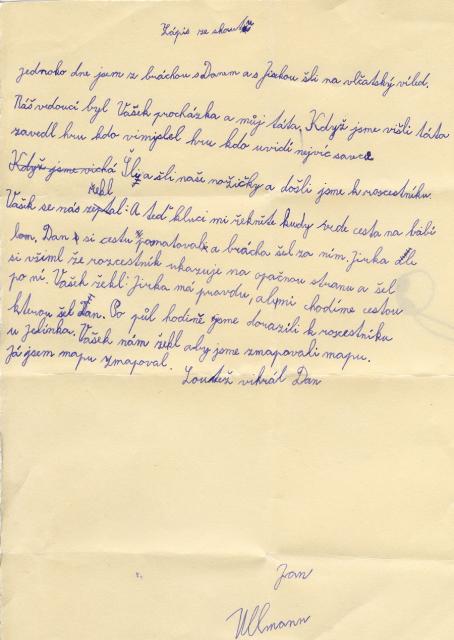 Zápis ze skautů
jednoho dne jsem z bráchou s Danem a s Jirkou šli na vlčatský víled.
Náš vedoucí byl Vašek procházka a můj táta. Když jsme višli táta
zavedl hru kdo vimislel hru kdo uvidí nejvíc savce
Když jsme vichá Šly a šli naše nožičky a došli jsme k roscestníku.
řekl
Vašik se nás zeptal: A teď kluci mi řekněte kudy vede cesta na bábí
lom. Dan si cestu pamatoval a brácha šel za ním. Jirka
si všiml že rozcestník ukazuje na opačnou stranu a šel
po ní. Vašek řekl: Jirka má pravdu, ale mi chodíme cestou
kterou šel Dan. Po půl hodině jsme dorazili k roscestníku
u jelínka. Vašek nám řekl aby jsme zmapovali mapu.
Já jsem mapu zmapoval.
Soutěž vihrál Dan
Jan
Ullmann